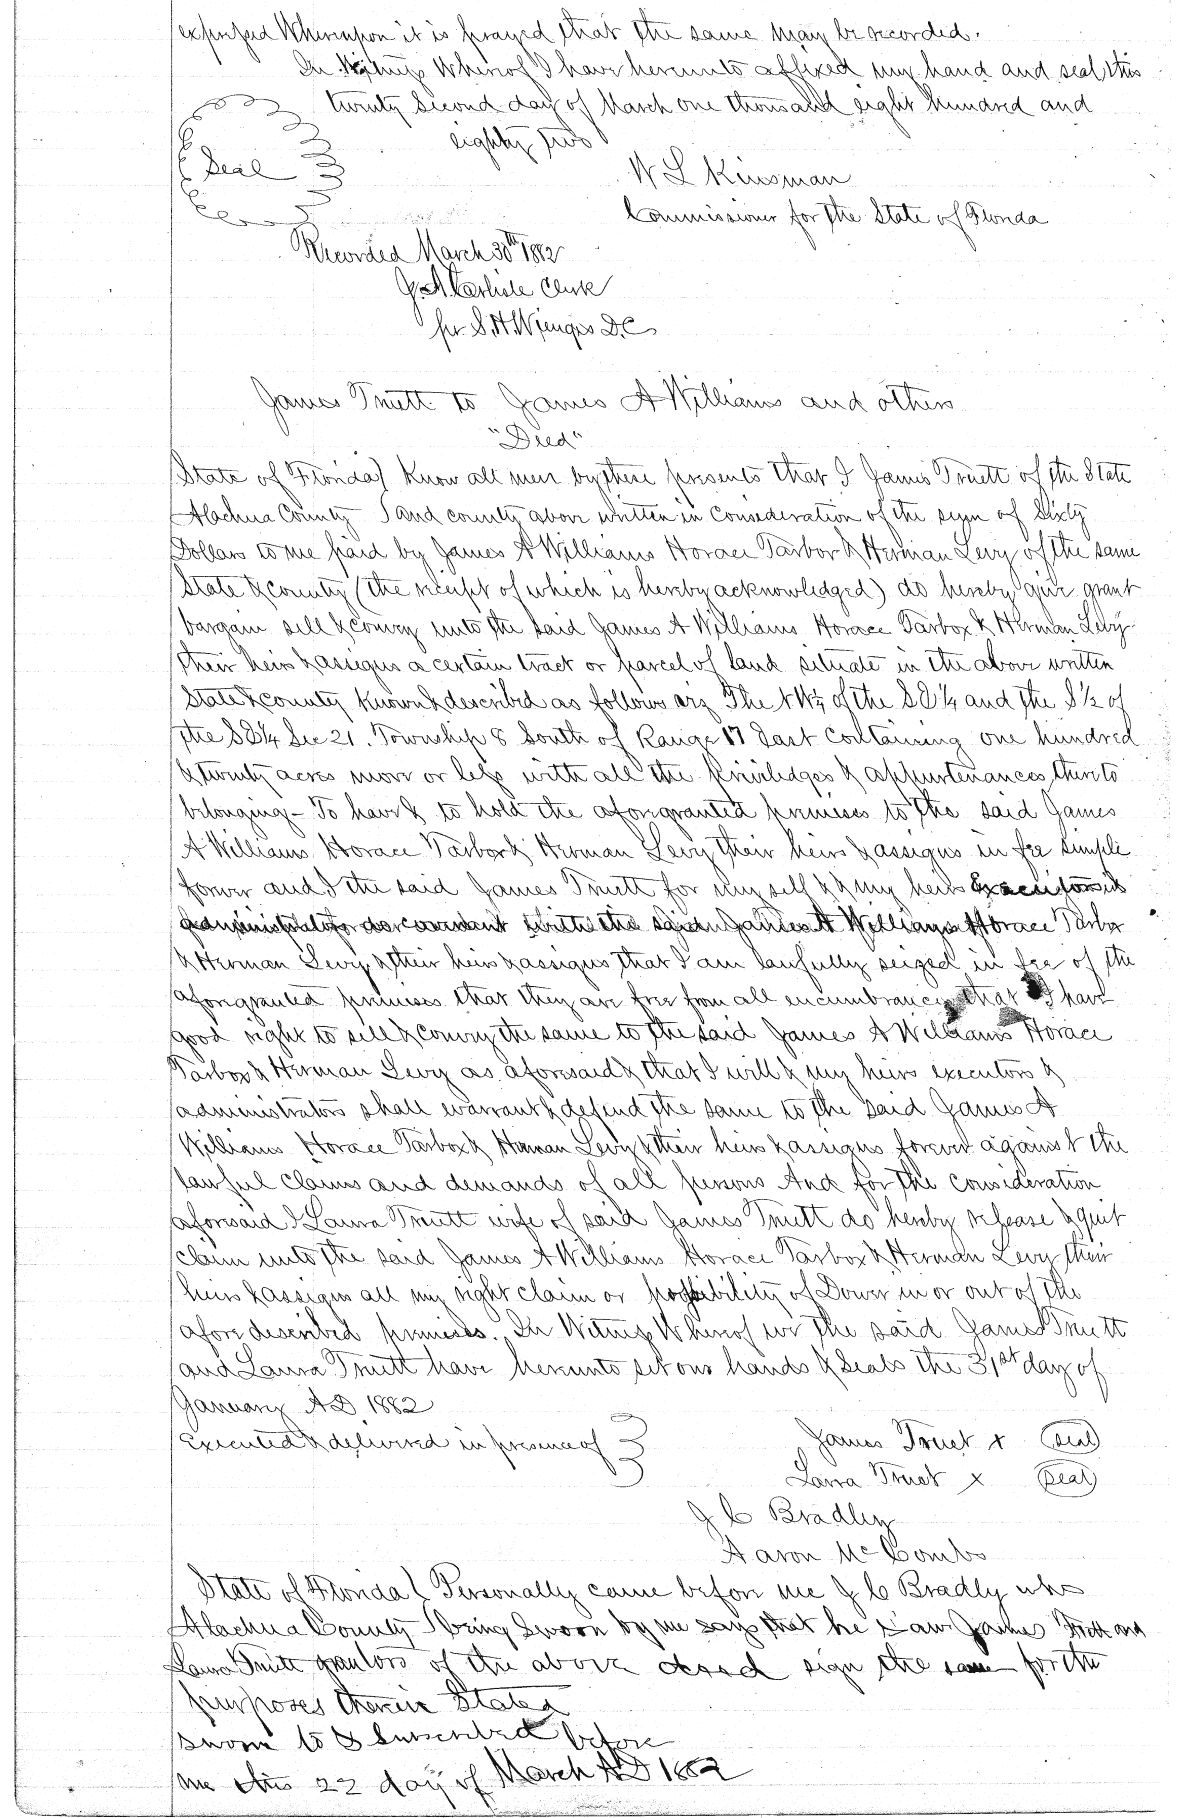 expressed Whereupon it is prayed that the same may be recorded.
In Witness Whereof I have hereunto affixed my hand and seal this
twenty Second day of March one thousand eight hundred and
eighty two
Seal
W L Kinsman
Commissioner for the State of Florida
Recorded March 30th 1882
J. A. Carlisle Clerk
pr S. H. Wienges D.C.
James Truett to James A Williams and others
"Deed"
State of Florida } Know all men by these presents that I James Truett of the State
Alachua County } and county above written in consideration of the sum of Sixty
Dollars to me paid by James A Williams Horace Tarbox & Herman Levy of the same
State & county (the receipt of which is hereby acknowledged) do hereby give grant
bargain sell & convey unto the said James A Williams Horace Tarbox & Herman Levy
their heirs & assigns a certain tract or parcel of land situate in the above written
State & county known & described as follows viz The NW¼ of the SE¼ and the S½ of
the SE¼ Sec 21. Township 8 South of Range 17 East containing one hundred
& twenty acres more or less with all the priviledges & appurtenances thereto
belonging – To have & to hold the aforegranted premises to the said James
A Williams Horace Tarbox & Herman Levy their heirs & assigns in fee simple
forever and I the said James Truett for my self & my heirs Executors &
administrators do covenant with the said James A Williams Horace Tarbox
& Herman Levy & their heirs & assigns that I am lawfully seized in fee of the
aforegranted premises that they are free from all encumbrances that I have
good right to sell & convey the same to the said James A Williams Horace
Tarbox & Herman Levy as aforesaid & that I will & my heirs executors &
administrators shall warrant & defend the same to the said James A
Williams Horace Tarbox & Herman Levy & their heirs & assigns forever against the
lawful claims and demands of all persons And for the consideration
aforesaid I Laura Truett wife of said James Truett do hereby release & quit
claim unto the said James A Williams Horace Tarbox & Herman Levy their
heirs & assigns all my right claim or possibility of Dower in or out of the
afore described premises. In Witness Whereof we the said James Truett
and Laura Truett have hereunto set our hands & Seals the 31st day of
January AD 1882
Executed & delivered in presence of }
James Truet x Seal
Laura Truet x Seal
J C Bradley
Aaron McCombs
State of Florida } Personally came before me J C Bradly who
Alachua County } being Sworn by me says that he saw James Truett and
Laura Truett grantors of the above deed sign the same for the
purposes therein Stated
sworn to & Subscribed before
me this 22 day of March AD 1882